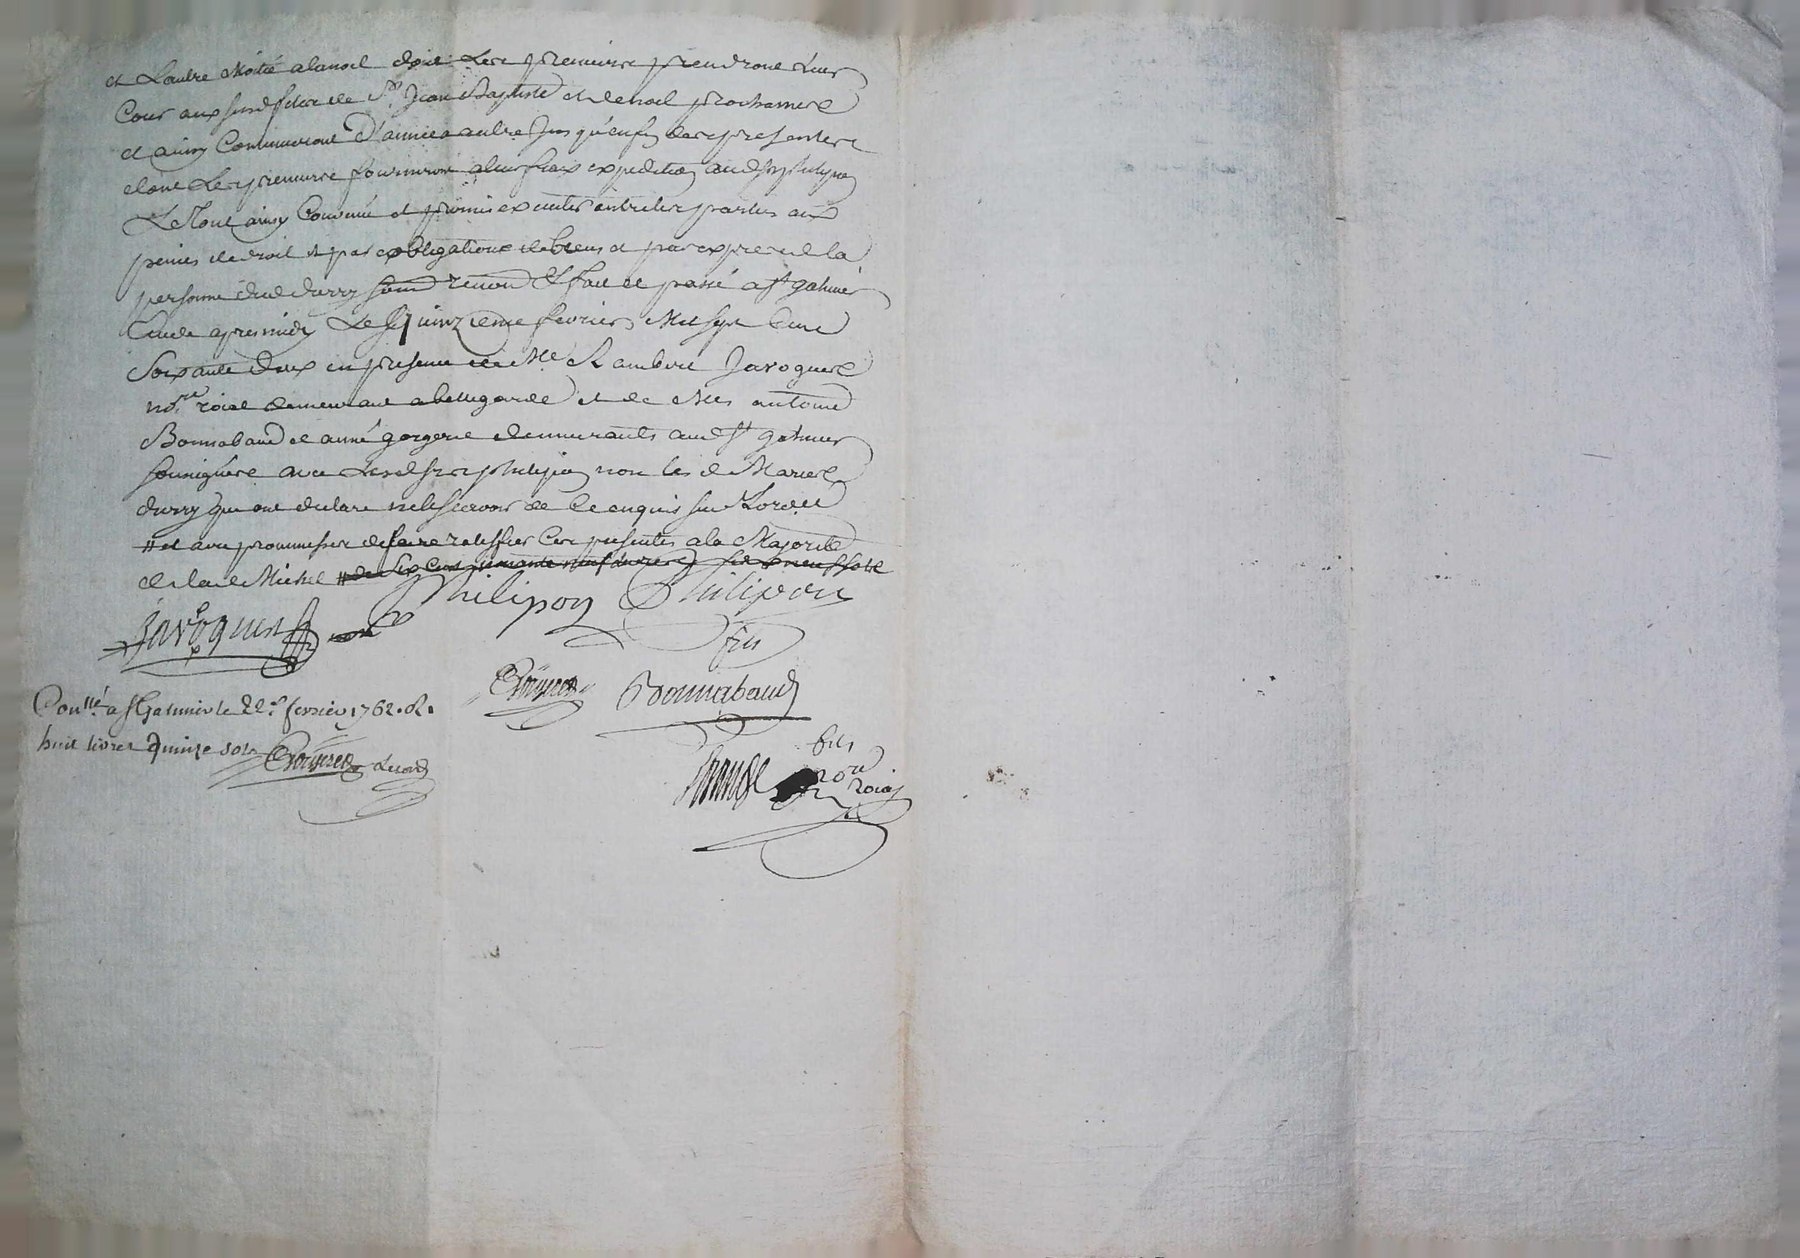 et L'autre Moitié a la noel dont Les premiers prendront Leurs
Cour aux susd festes de St Jean Baptiste et de noel prochaines
et ainsy Continueront D'année a autre Jusqu'en fin des presentes
dont Les premiers fourniront a leur fraix expedition aud Sr philipon
Le Tout ainsy Convenu et promis executer entre les parties aux
peines de droit et par obligations de biens et par exprés de la
personne dud durry soum renon &c fait et passé a st galmier
Etude apres midy Le Quinzieme fevrier Mil sept Cent
Soixante Deux en presence de Me Rambert Javogues
nore roial demeurant a bellegarde et de Mes antoine
Bonnabaud et anné gorgeret demeurants aud st galmier
soussignées avec Lesd Srs philipon non les d Mariés
durry qui ont declaré ne le sçavoir de Ce enquis sur Lordre
# et avec promesse de faire ratiffier Ces presentes a la Majorité
de lad Michel
Philipon Philipon
fils
Javogues
Bonnabaud
fils
nore
roial
Conllé a St Galmier le 22e fevrier 1762. R.
huit livres quinze sols